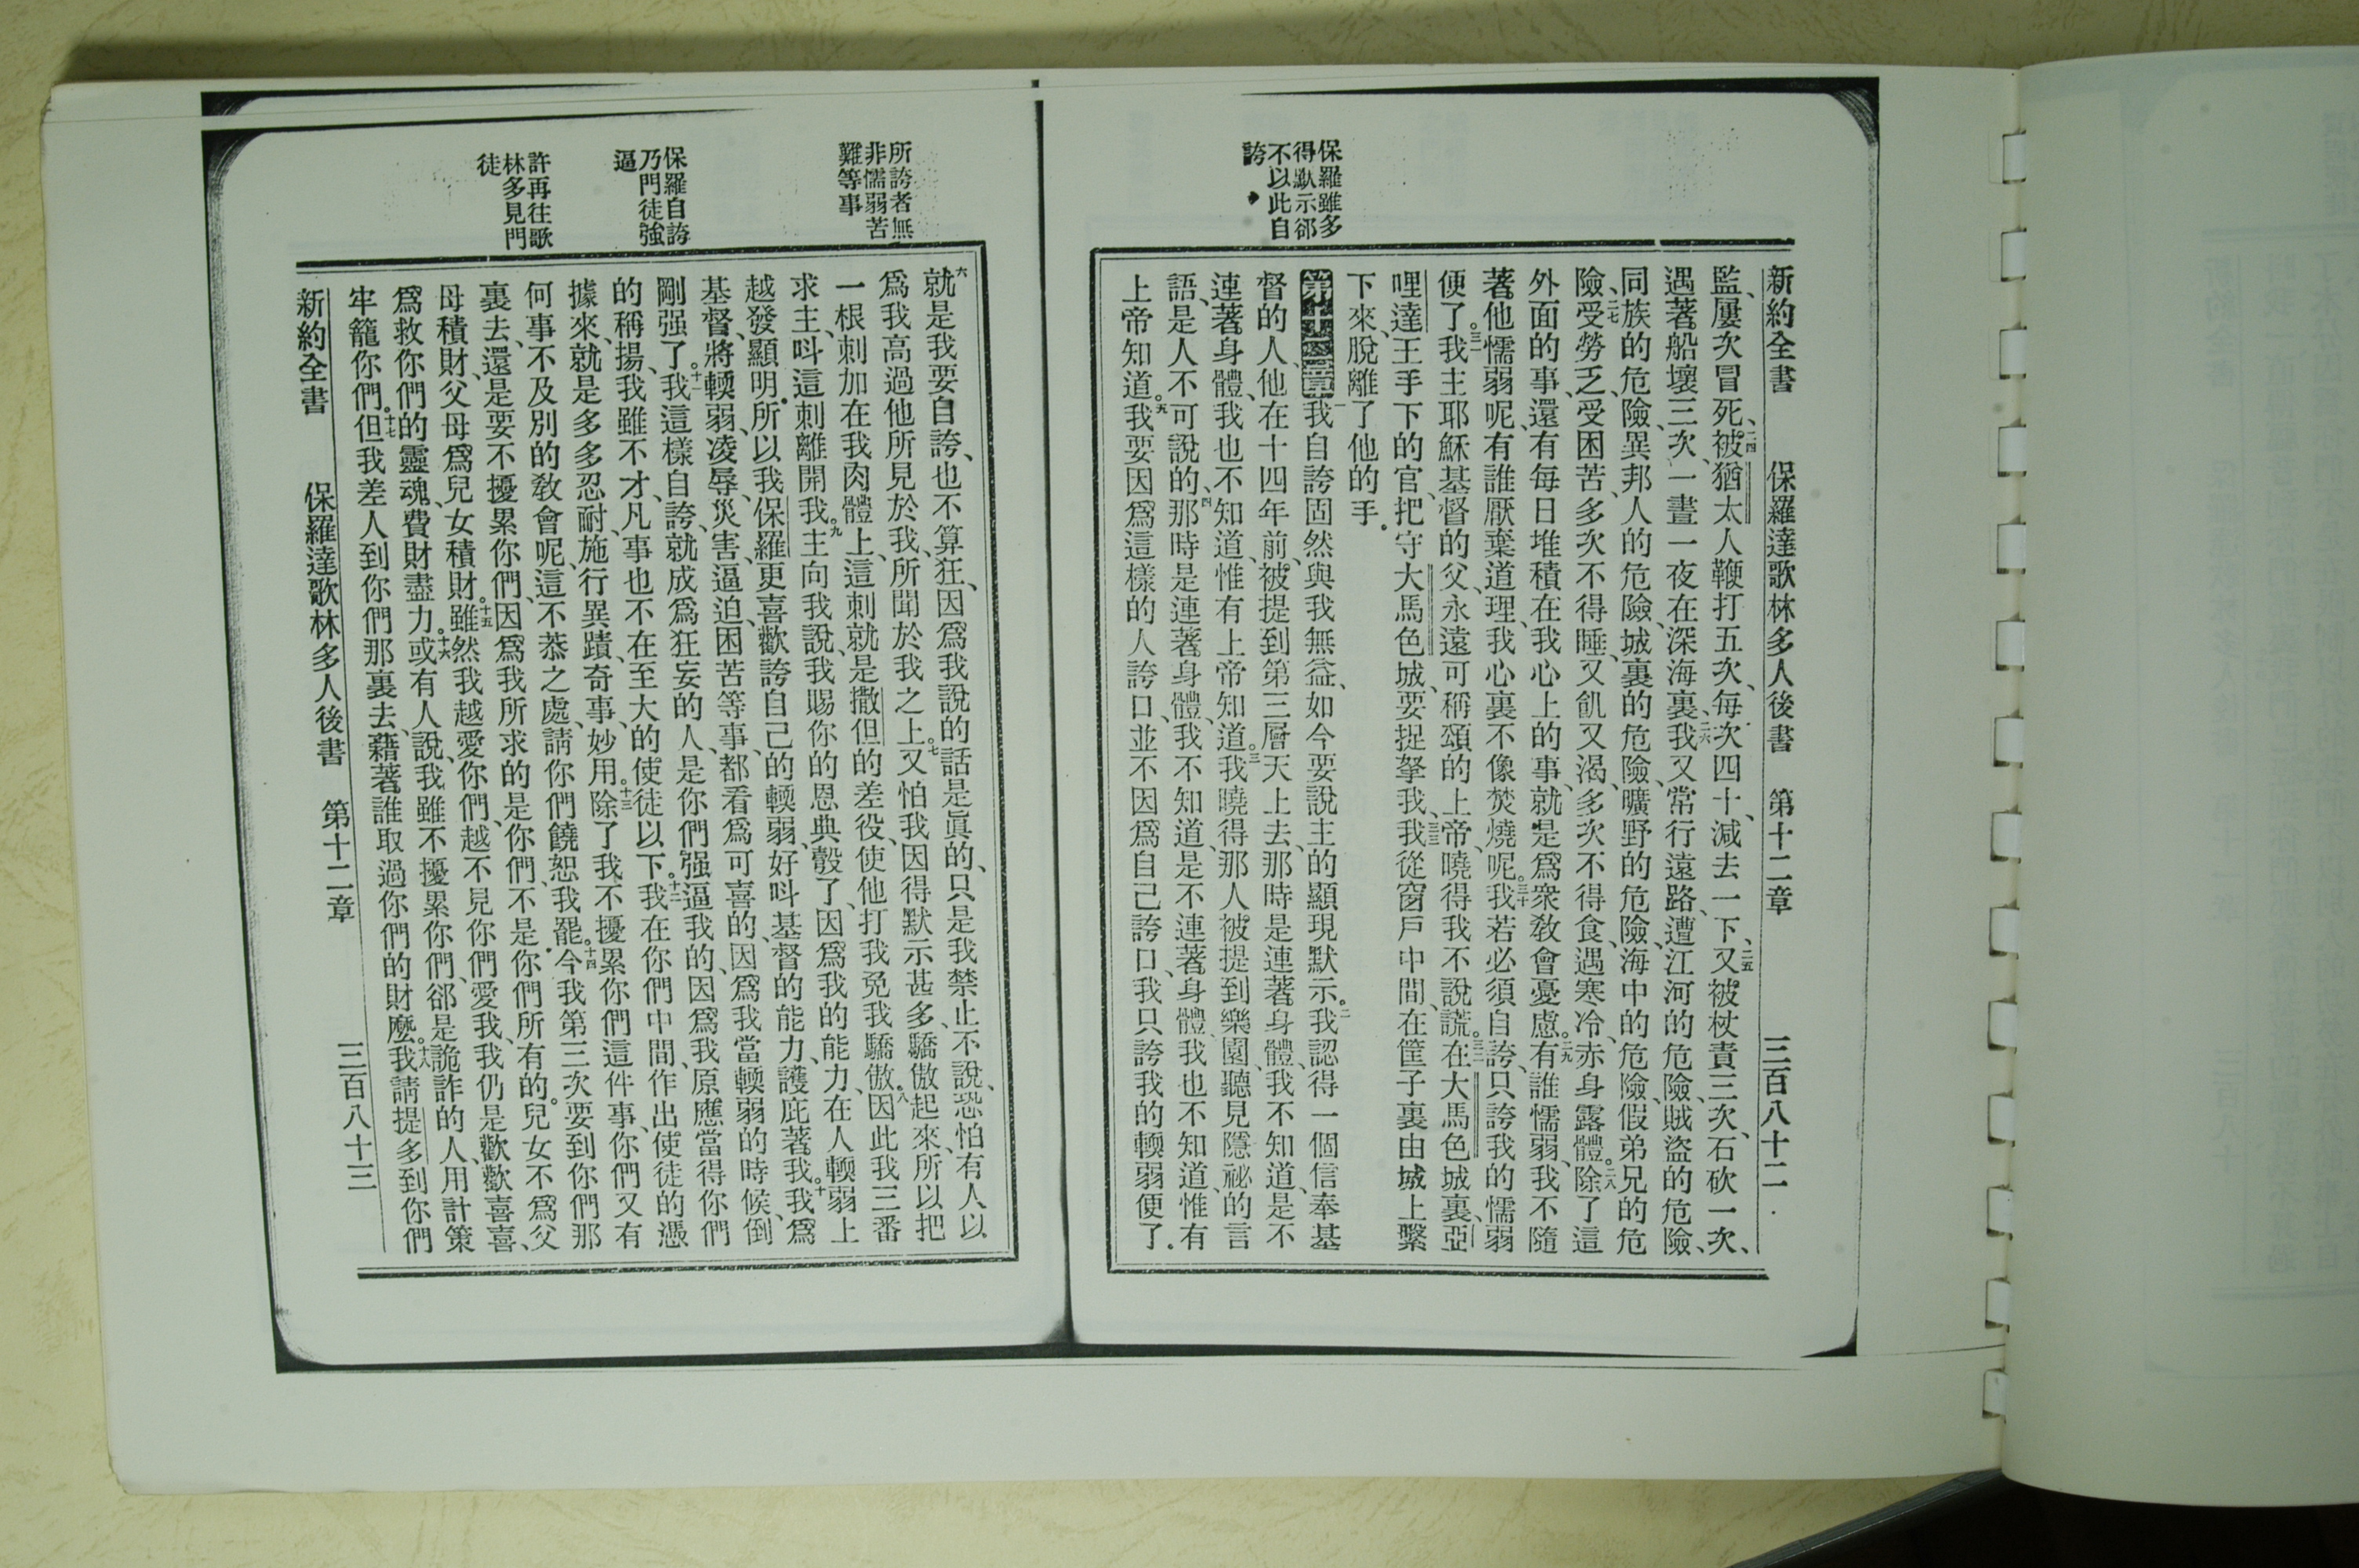 保羅雖多
得默示郤
不以此自
誇
新約全書 保羅達歌林多人後書 第十二章 三百八十二
監、屢次冒死、二四被猶太人鞭打五次、每次四十、減去一下、二五又被杖責三次、石砍一次、
遇著船壞三次、一晝一夜在深海裏、二六我又常行遠路、遭江河的危險、賊盜的危險、
同族的危險、異邦人的危險、城裏的危險、曠野的危險、海中的危險、假弟兄的危
險、二七受勞乏、受困苦、多次不得睡、又飢又渴、多次不得食、遇寒冷、赤身露體。二八除了這
外面的事、還有每日堆積在我心上的事、就是爲衆敎會憂慮。二九有誰懦弱、我不隨
著他懦弱呢、有誰厭棄道理、我心裏不像焚燒呢。三十我若必須自誇、只誇我的懦弱
便了。三一我主耶穌基督的父、永遠可稱頌的上帝、曉得我不說謊。三二在大馬色城裏、亞
哩達王手下的官、把守大馬色城、要捉拏我、三三我從窗戶中間、在筐子裏由城上繫
下來、脫離了他的手。
第十二章一我自誇固然與我無益、如今要說主的顯現默示。二我認得一個信奉基
督的人、他在十四年前、被提到第三層天上去、那時是連著身體、我不知道、是不
連著身體、我也不知道、惟有上帝知道。三我曉得那人被提到樂園、聽見隱祕的言
語、是人不可說的、四那時是連著身體、我不知道、是不連著身體、我也不知道、惟有
上帝知道。五我要因爲這樣的人誇口、並不因爲自己誇口、我只誇我的輭弱便了。
所誇者無
非懦弱苦
難等事
保羅自誇
乃門徒強
逼
許再往歌
林多見門
徒
六就是我要自誇、也不算狂、因爲我說的話是眞的、只是我禁止不說、恐怕有人以
爲我高過他所見於我、所聞於我之上。七又怕我因得默示甚多、驕傲起來、所以把
一根刺加在我肉體上、這刺就是撒但的差役、使他打我免我驕傲。八因此我三番
求主、呌這刺離開我。九主向我說、我賜你的恩典彀了、因爲我的能力、在人輭弱上
越發顯明。所以我保羅更喜歡誇自己的輭弱、好呌基督的能力、護庇著我。十我爲
基督、將輭弱、凌辱、災害、逼迫、困苦等事、都看爲可喜的、因爲我當輭弱的時候、倒
剛强了。十一我這樣自誇、就成爲狂妄的人、是你們强逼我的、因爲我原應當得你們
的稱揚、我雖不才、凡事也不在至大的使徒以下。十二我在你們中間、作出使徒的憑
據來、就是多多忍耐、施行異蹟、奇事、妙用。十三除了我不擾累你們這件事、你們又有
何事不及別的敎會呢、這不恭之處、請你們饒恕我罷。十四今我第三次要到你們那
裏去、還是要不擾累你們、因爲我所求的是你們、不是你們所有的。兒女不爲父
母積財、父母爲兒女積財。十五雖然我越愛你們、越不見你們愛我、我仍是歡歡喜喜、
爲救你們的靈魂、費財盡力。十六或有人說、我雖不擾累你們、郤是詭詐的人、用計策
牢籠你們。十七但我差人到你們那裏去、藉著誰取過你們的財麽。十八我請提多到你們
新約全書 保羅達歌林多人後書 第十二章 三百八十三